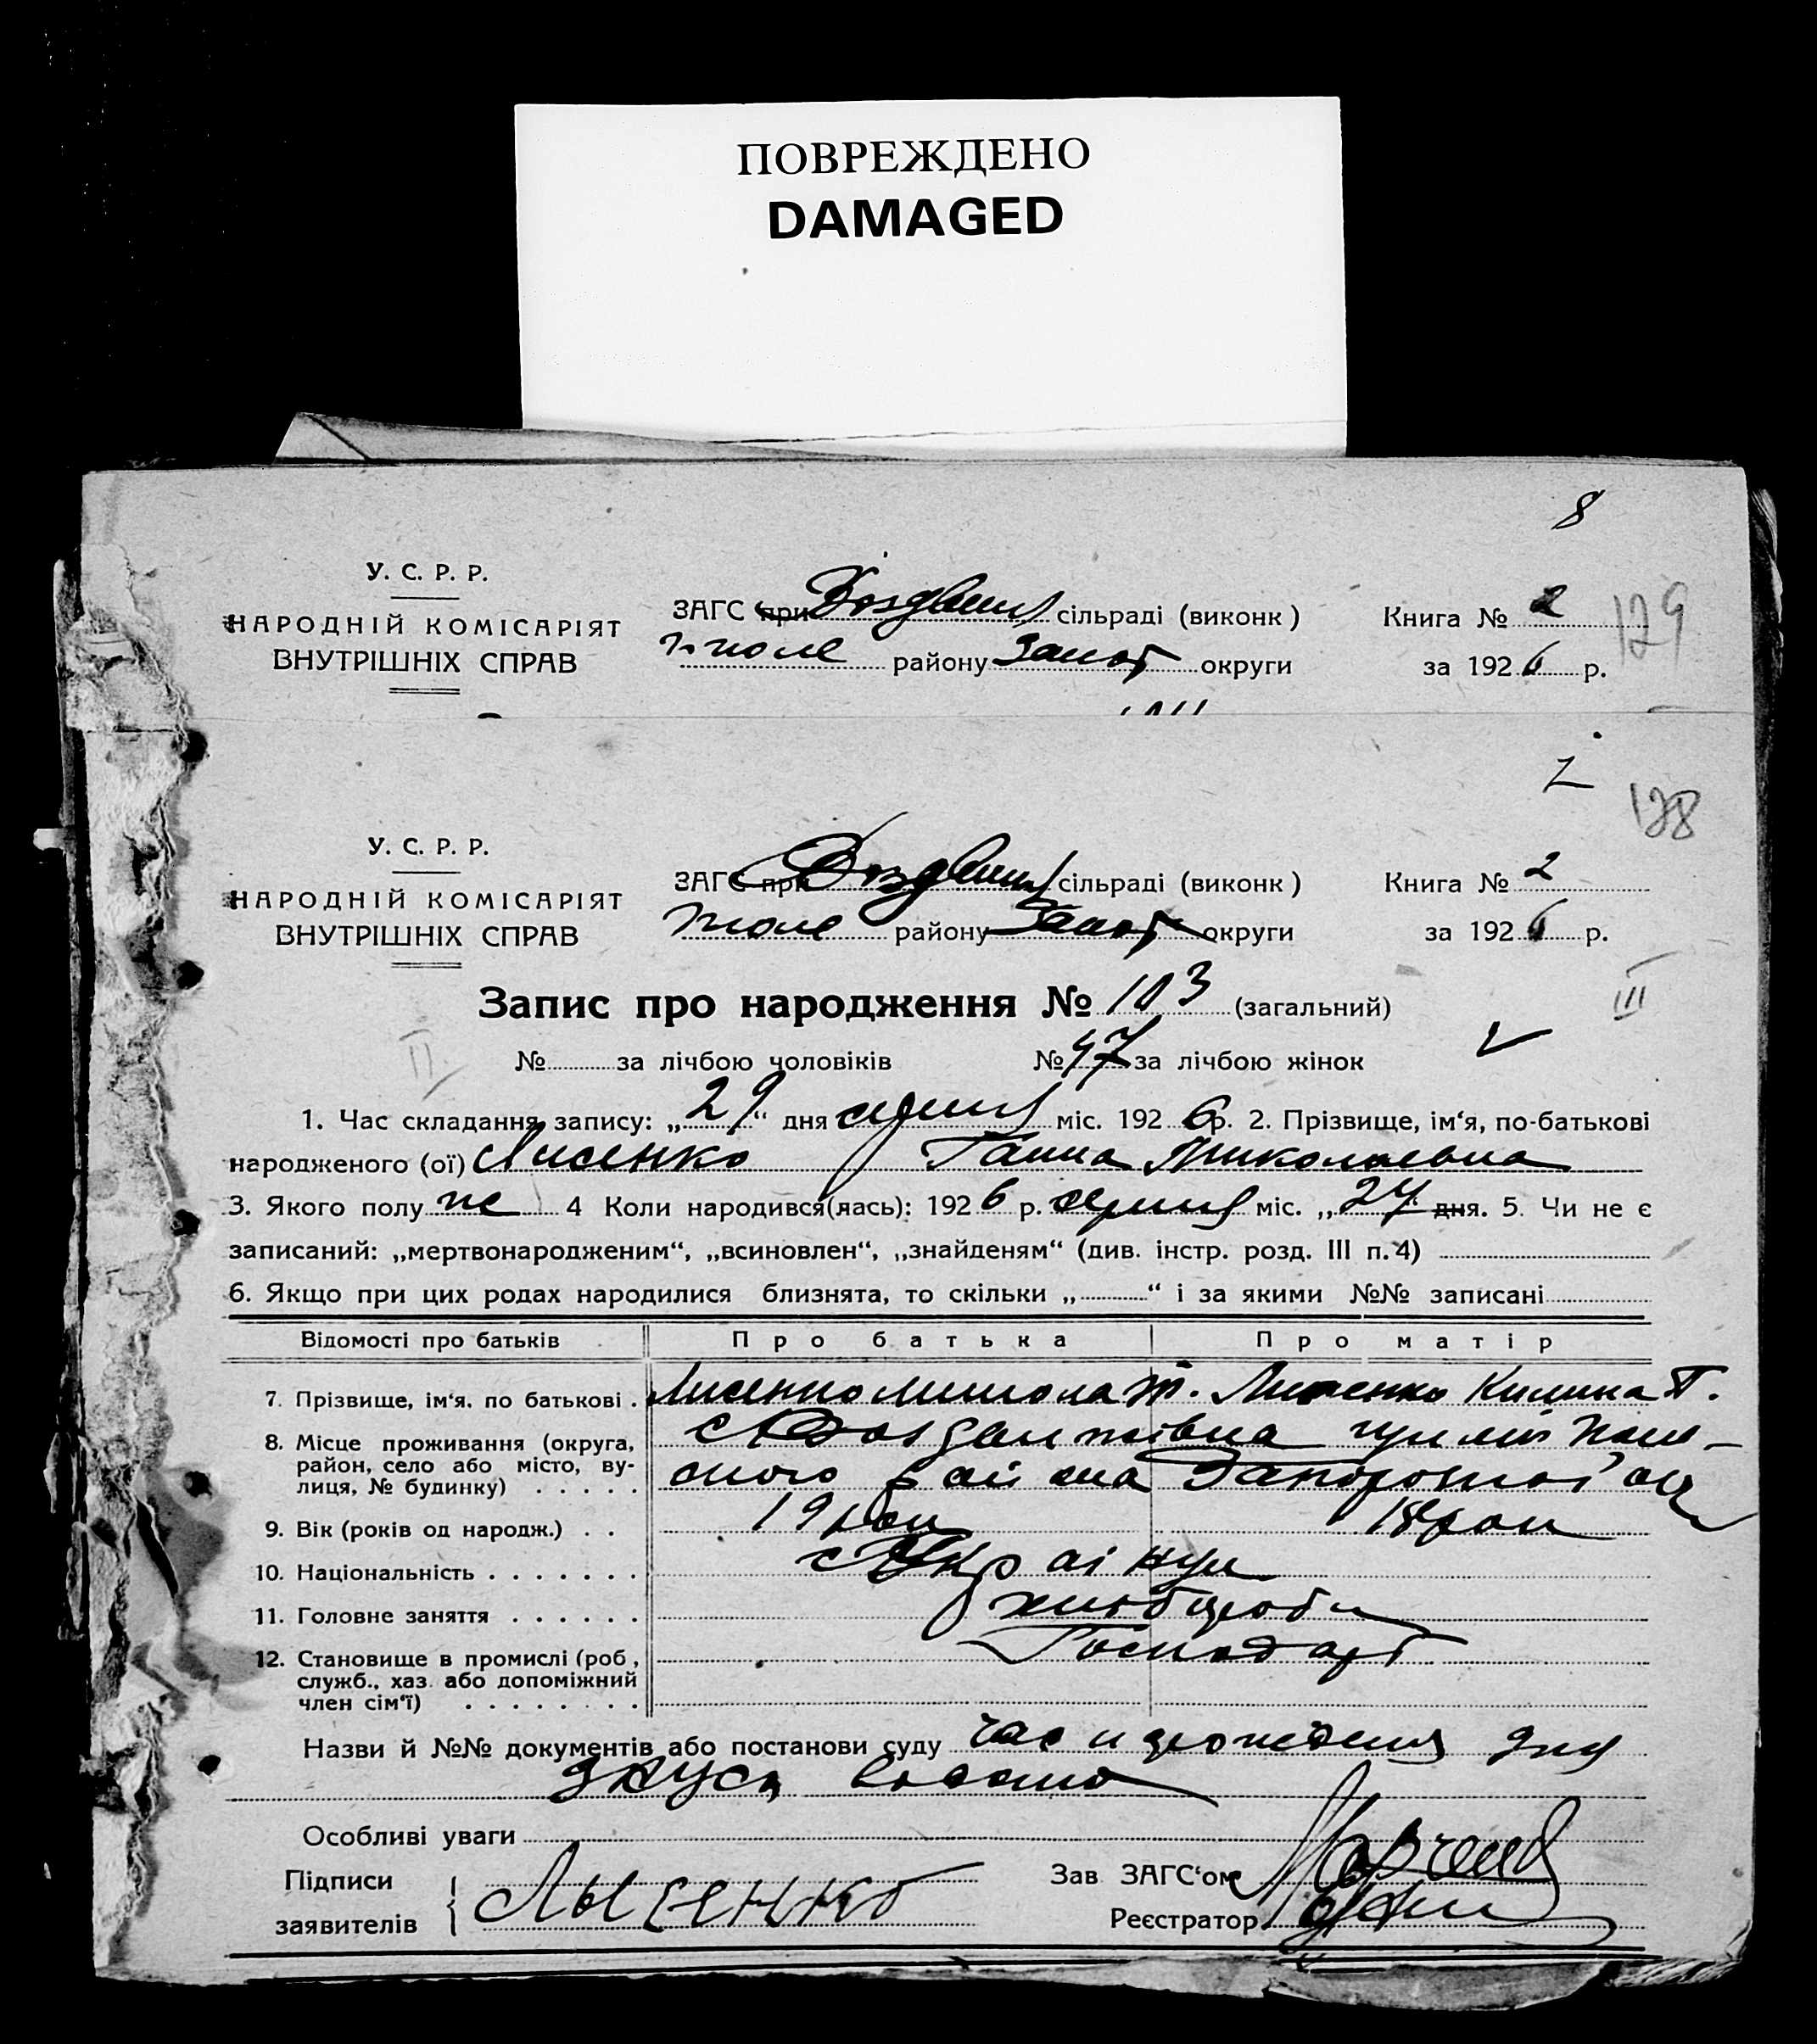 ПОВРЕЖДЕНО
DAMAGED
8
У. С. Р. Р.
НАРОДНІЙ КОМІСАРІЯТ
ВНУТРІШНІХ СПРАВ
ЗАГС при Воздвиж сільраді (виконк)
г-поле району Запор округи
Книга № 2
за 1926 р.
129
2
128
У. С. Р. Р.
НАРОДНІЙ КОМІСАРІЯТ
ВНУТРІШНІХ СПРАВ
ЗАГС при Воздвиж сільраді (виконк)
поле району Запор округи
Книга № 2
за 1926 р.
Запис про народження № 103 (загальний)
III
II
№ за лічбою чоловіків № 47 за лічбою жінок
1. Час складання запису: „29“ дня серпня міс. 1926 р. 2. Прізвище, ім‘я, по-батькові
народженого (ої) Лисенко Ганна Миколаевна
3. Якого полу ж 4 Коли народився(лась): 1926 р. серпня міс. „27 дня. 5. Чи не є
записаний: „мертвонародженим“, „всиновлен“, „знайденям“ (див. інстр. розд. III п. 4)
6. Якщо при цих родах народилися близнята, то скільки „ “ і за якими №№ записані
Відомості про батьків Про батька Про матір
7. Прізвище, ім‘я. по батькові . Лисенко Микола Лисенко Килина П.
8. Місце проживання (округа,
район, село або місто, ву-
лиця, № будинку) . . . . .
с Воздвижівка гуляй Поль-
ського района Запорозької ок
9. Вік (років од народж.) . . 19 рок 18 рок
10. Національність . . . . . . .
11. Головне заняття . . . . . . хлібороби
12. Становище в промислі (роб,
служб., хаз. або допоміжний
член сім‘ї) . . . . . . . .
Господарі
Назви й №№ документів або постанови суду
Особливі уваги
Підписи
заявителів
Лысенко
Зав ЗАГС‘ом
Реєстратор